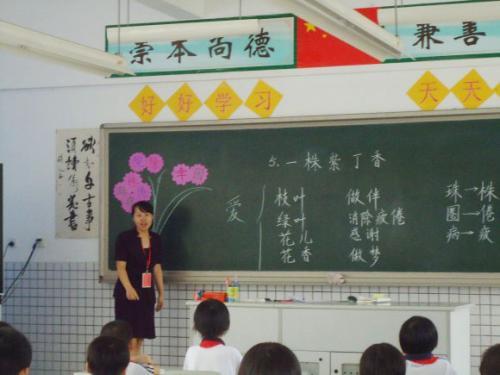 崇本尚德
兼善
好好学习
天天
5.一株紫丁香
爱
枝叶 做伴
绿叶 消除疲倦
花儿 感谢
花香 做梦
珠→株
圈→倦
病→疲